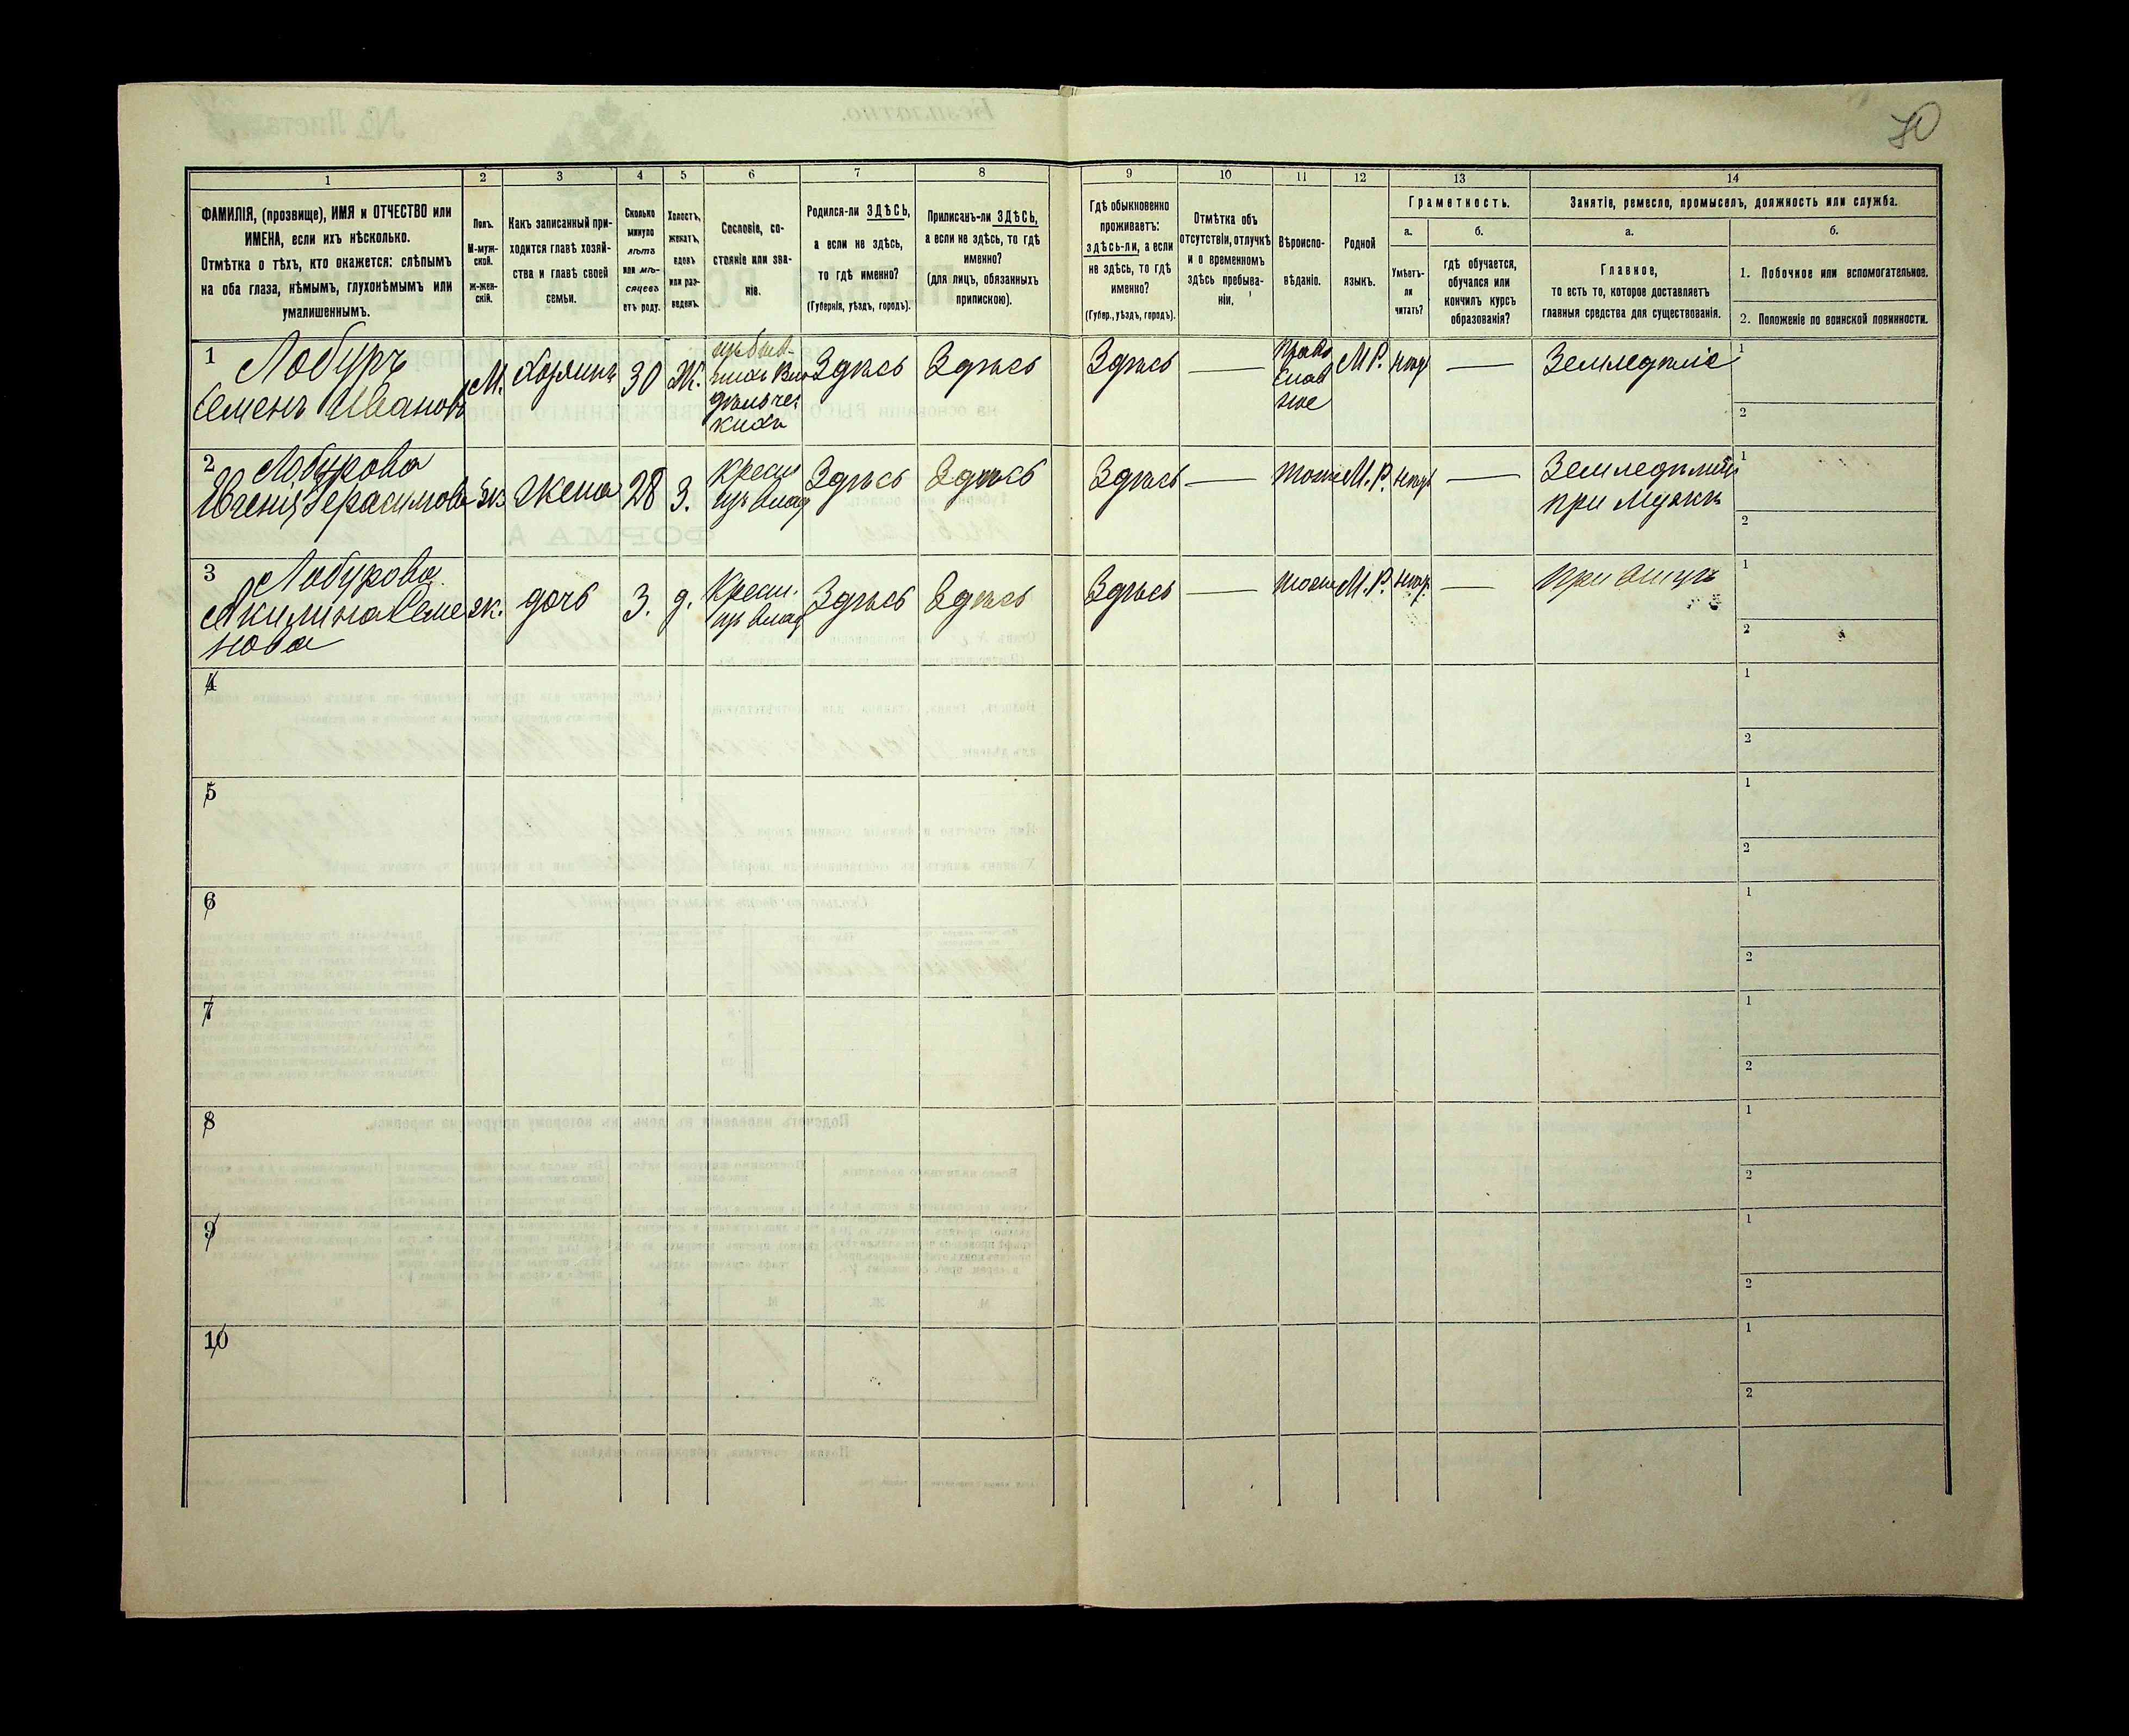 70
1
2
3
4
5
6
7
8
9
10
11
12
13
14
ФАМИЛІЯ, (прозвище), ИМЯ и ОТЧЕСТВО или
ИМЕНА, если ихъ нѣсколько.
Отмѣтка о тѣхъ, кто окажется: слѣпымъ
на оба глаза, нѣмымъ, глухонѣмымъ или
умалишеннымъ.
Полъ.
М-муж-
ской.
Ж-жен-
скій.
Какъ записанный при-
ходится главѣ хозяй-
ства и главѣ своей
семьи.
Сколько
минуло
лѣтъ
или мѣ-
сяцевъ
отъ роду.
Холостъ,
женатъ,
вдовъ
или раз-
веденъ.
Сословіе, со-
стояніе или зва-
ніе.
Родился-ли ЗДѢСЬ,
а если не здѣсь,
то гдѣ именно?
(Губернія, уѣздъ, городъ).
Приписанъ-ли ЗДѢСЬ,
а если не здѣсь, то гдѣ
именно?
(для лицъ, обязанныхъ
припискою).
Гдѣ обыкновенно
проживаетъ:
здѣсь-ли, а если
не здѣсь, то гдѣ
именно?
(Губер., уѣздъ, городъ).
Отмѣтка объ
отсутствіи, отлучкѣ
и о временномъ
здѣсь пребыва-
ніи.
Вѣроиспо-
вѣданіе.
Родной
языкъ.
Грамотность.
а.
Умѣетъ-
ли
читать?
б.
гдѣ обучается,
обучался или
кончилъ курсъ
образованія?
Занятіе, ремесло, промыселъ, должность или служба.
а.
Главное,
то есть то, которое доставляетъ
главныя средства для существованія.
б.
1. Побочное или вспомогательное.
2. Положеніе по воинской повинности.
1 Лобуръ
Семенъ Ивановъ
М.
Хозяинъ
30
Ж.
изъ быв-
шихъ Вла
дѣльчес
кихъ
Здѣсь
Здѣсь
Здѣсь
—
Право
слав
ное
М.Р.
нѣтъ
—
Земледѣліе
1
2
2 Лобурова
Евгенія Герасимова
ж.
Жена
28
З.
Крест
изъ влад
Здѣсь
Здѣсь
Здѣсь
—
тоже
М.Р.
нѣтъ
—
Земледѣліе
при мужѣ
1
2
3 Лобурова
Акилина Семе
нова
ж.
дочь
3.
д.
Крест.
изъ влад
Здѣсь
Здѣсь
Здѣсь
—
тоже
М.Р.
нѣтъ
—
при отцѣ
1
2
4
1
2
5
1
2
6
1
2
7
1
2
8
1
2
9
1
2
10
1
2